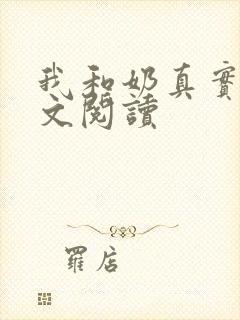 我和奶真實
文閱讀
羅店